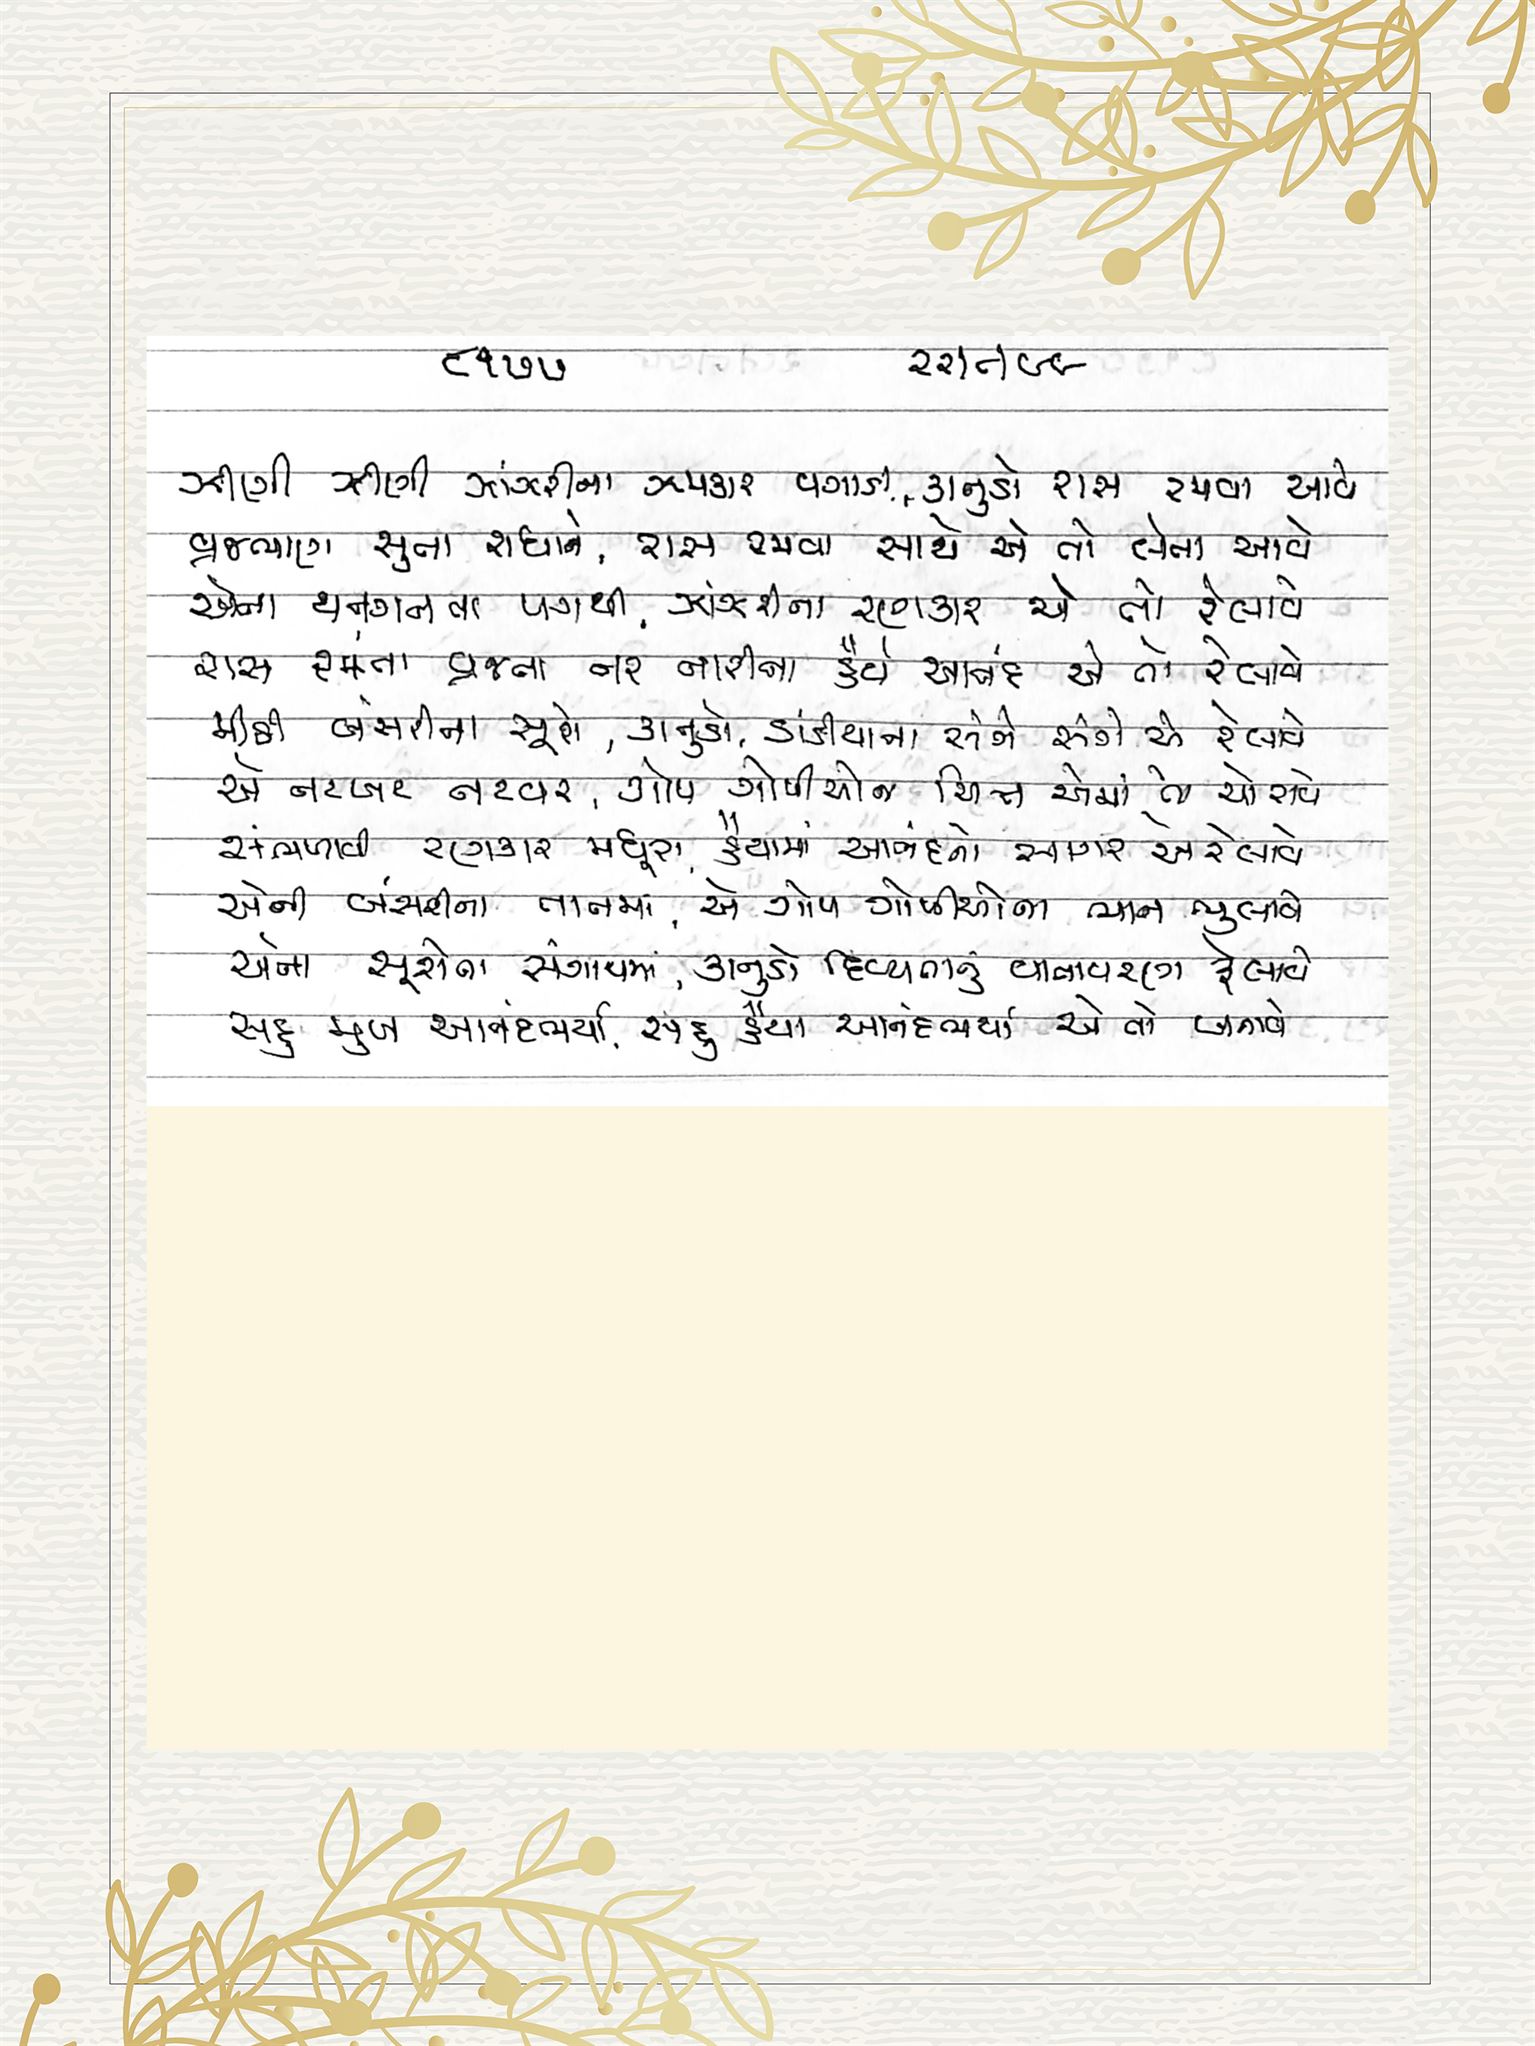 ૮૧૭૭ ૨૨।ન।૯૮
ઝીણી ઝીણી ઝાંઝરીના ઝપકાર વગાડી, કાનુડો રાસ રમવા આવે
વ્રજભાણ સુના રાધાને, રાસ રમવા સાથે એ તો લેતા આવે
એના થનગનતા પગથી, ઝાંઝરીના રણકાર એ તો રેલાવે
રાસ રમંતા વ્રજના નર નારીના હૈયે આનંદ એ તો રેલાવે
મીઠી બંસરીના સૂરો, કાનુડો, ડાંડીયાના સંગે સંગે એ રેલાવે
એ નટખટ નટવર, ગોપ ગોપીઓના ચિત્ત એમાં તો ચોરાવે
સંભળાવી રણકાર મધૂરા, હૈયામાં આનંદનો સાગર એ રેલાવે
એની બંસરીના તાનમાં, એ ગોપ ગોપીઓના ભાન ભુલાવે
એના સૂરોના સંગાથમાં, કાનુડો દિવ્યતાનું વાતાવરણ ફેલાવે
સહુ મુખ આનંદભર્યા, સહુ હૈયા આનંદભર્યા એ તો બનાવે